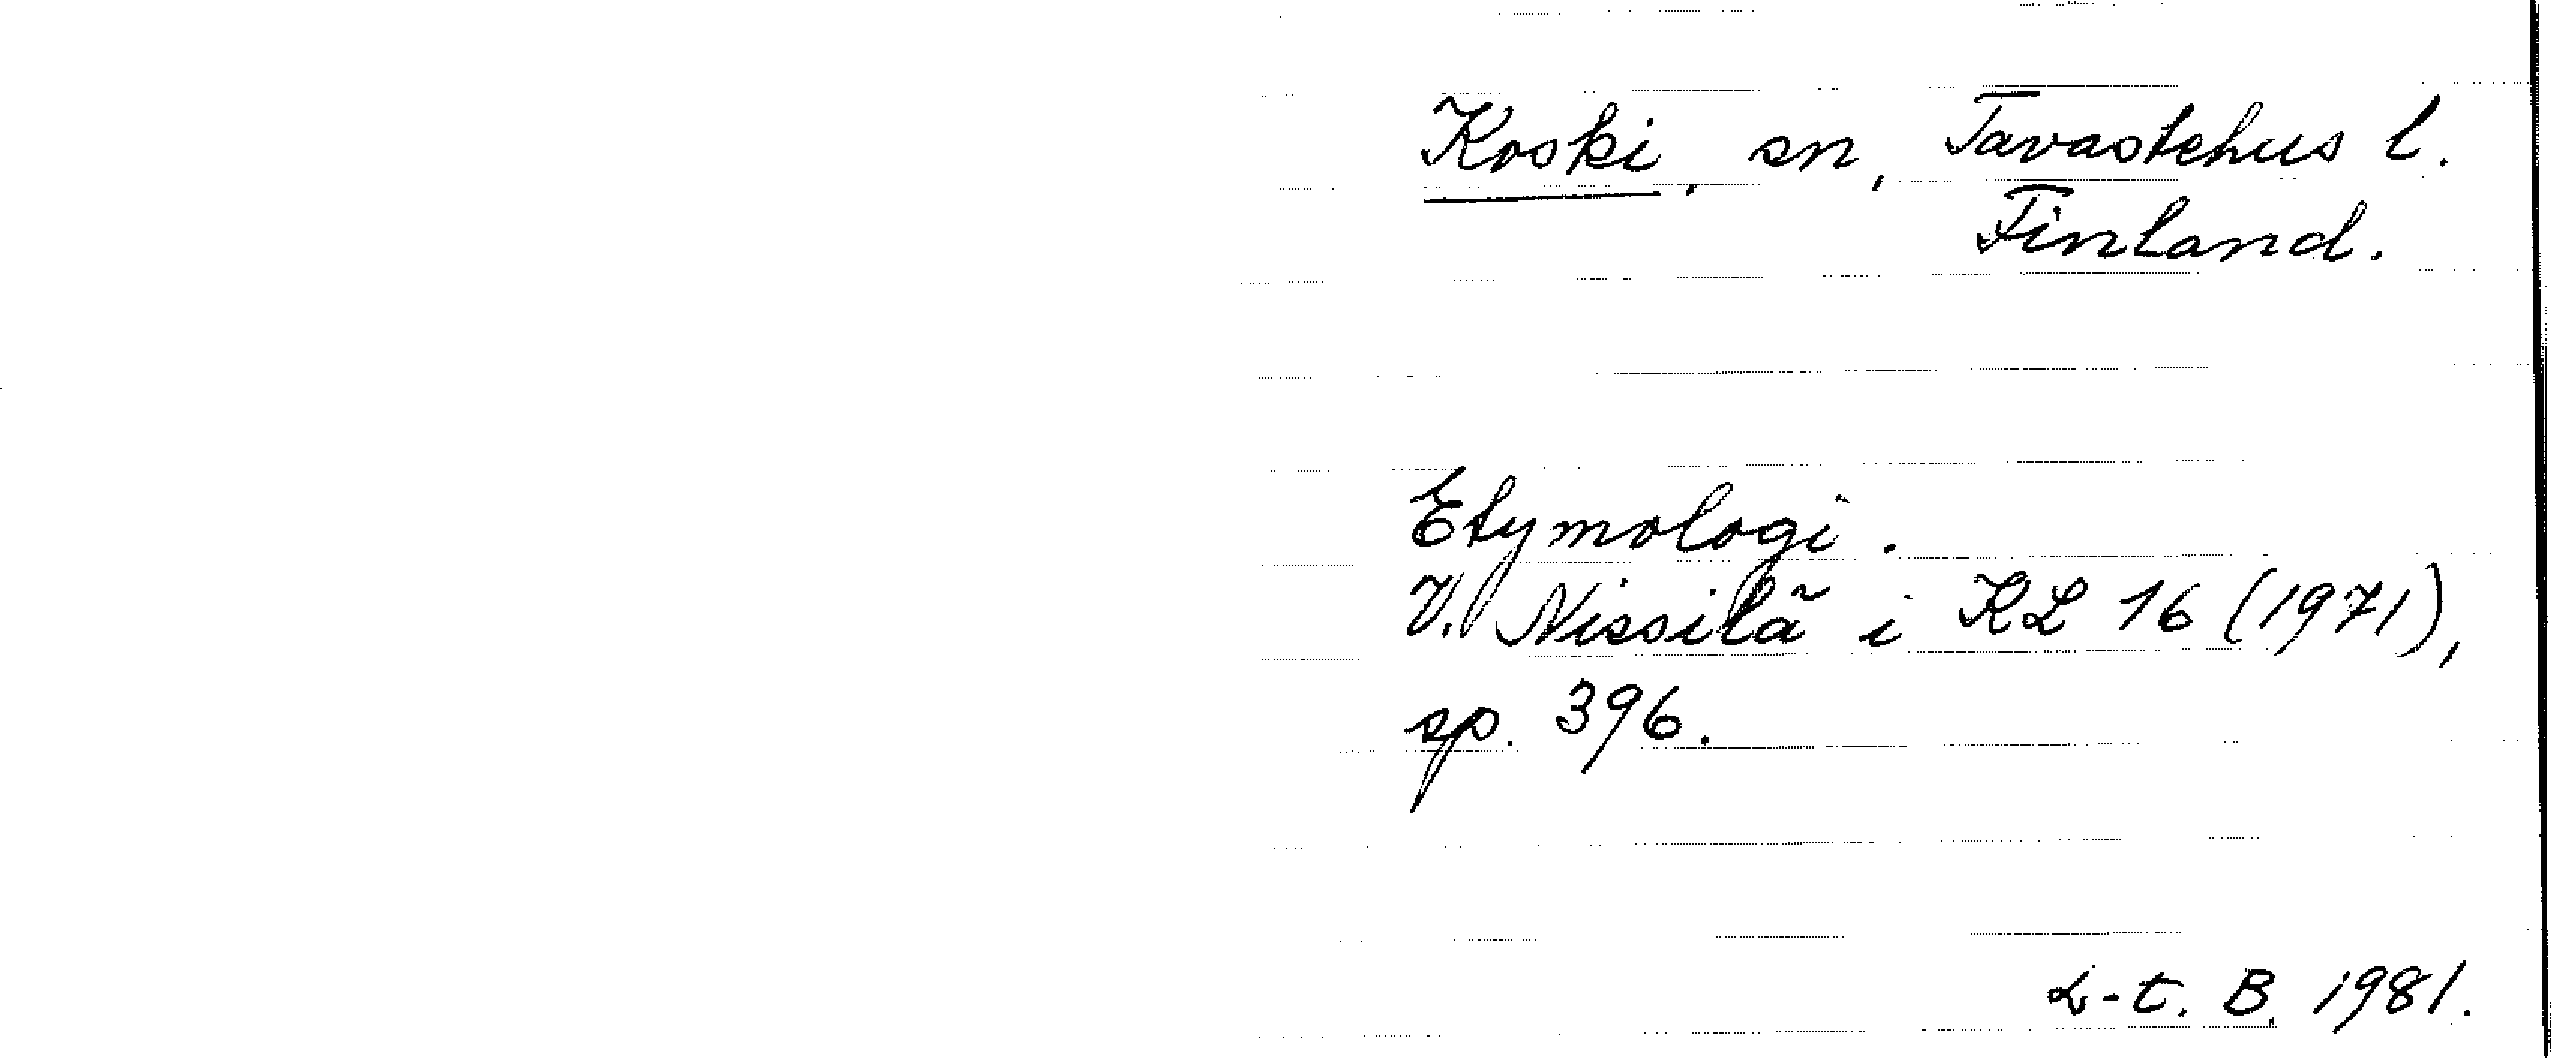 Koski, sn, Tavastehus l.
Finland.
Etymologi.
V. Nissilä i KL 16 (1971),
sp. 396.
L-t. B. 1981.